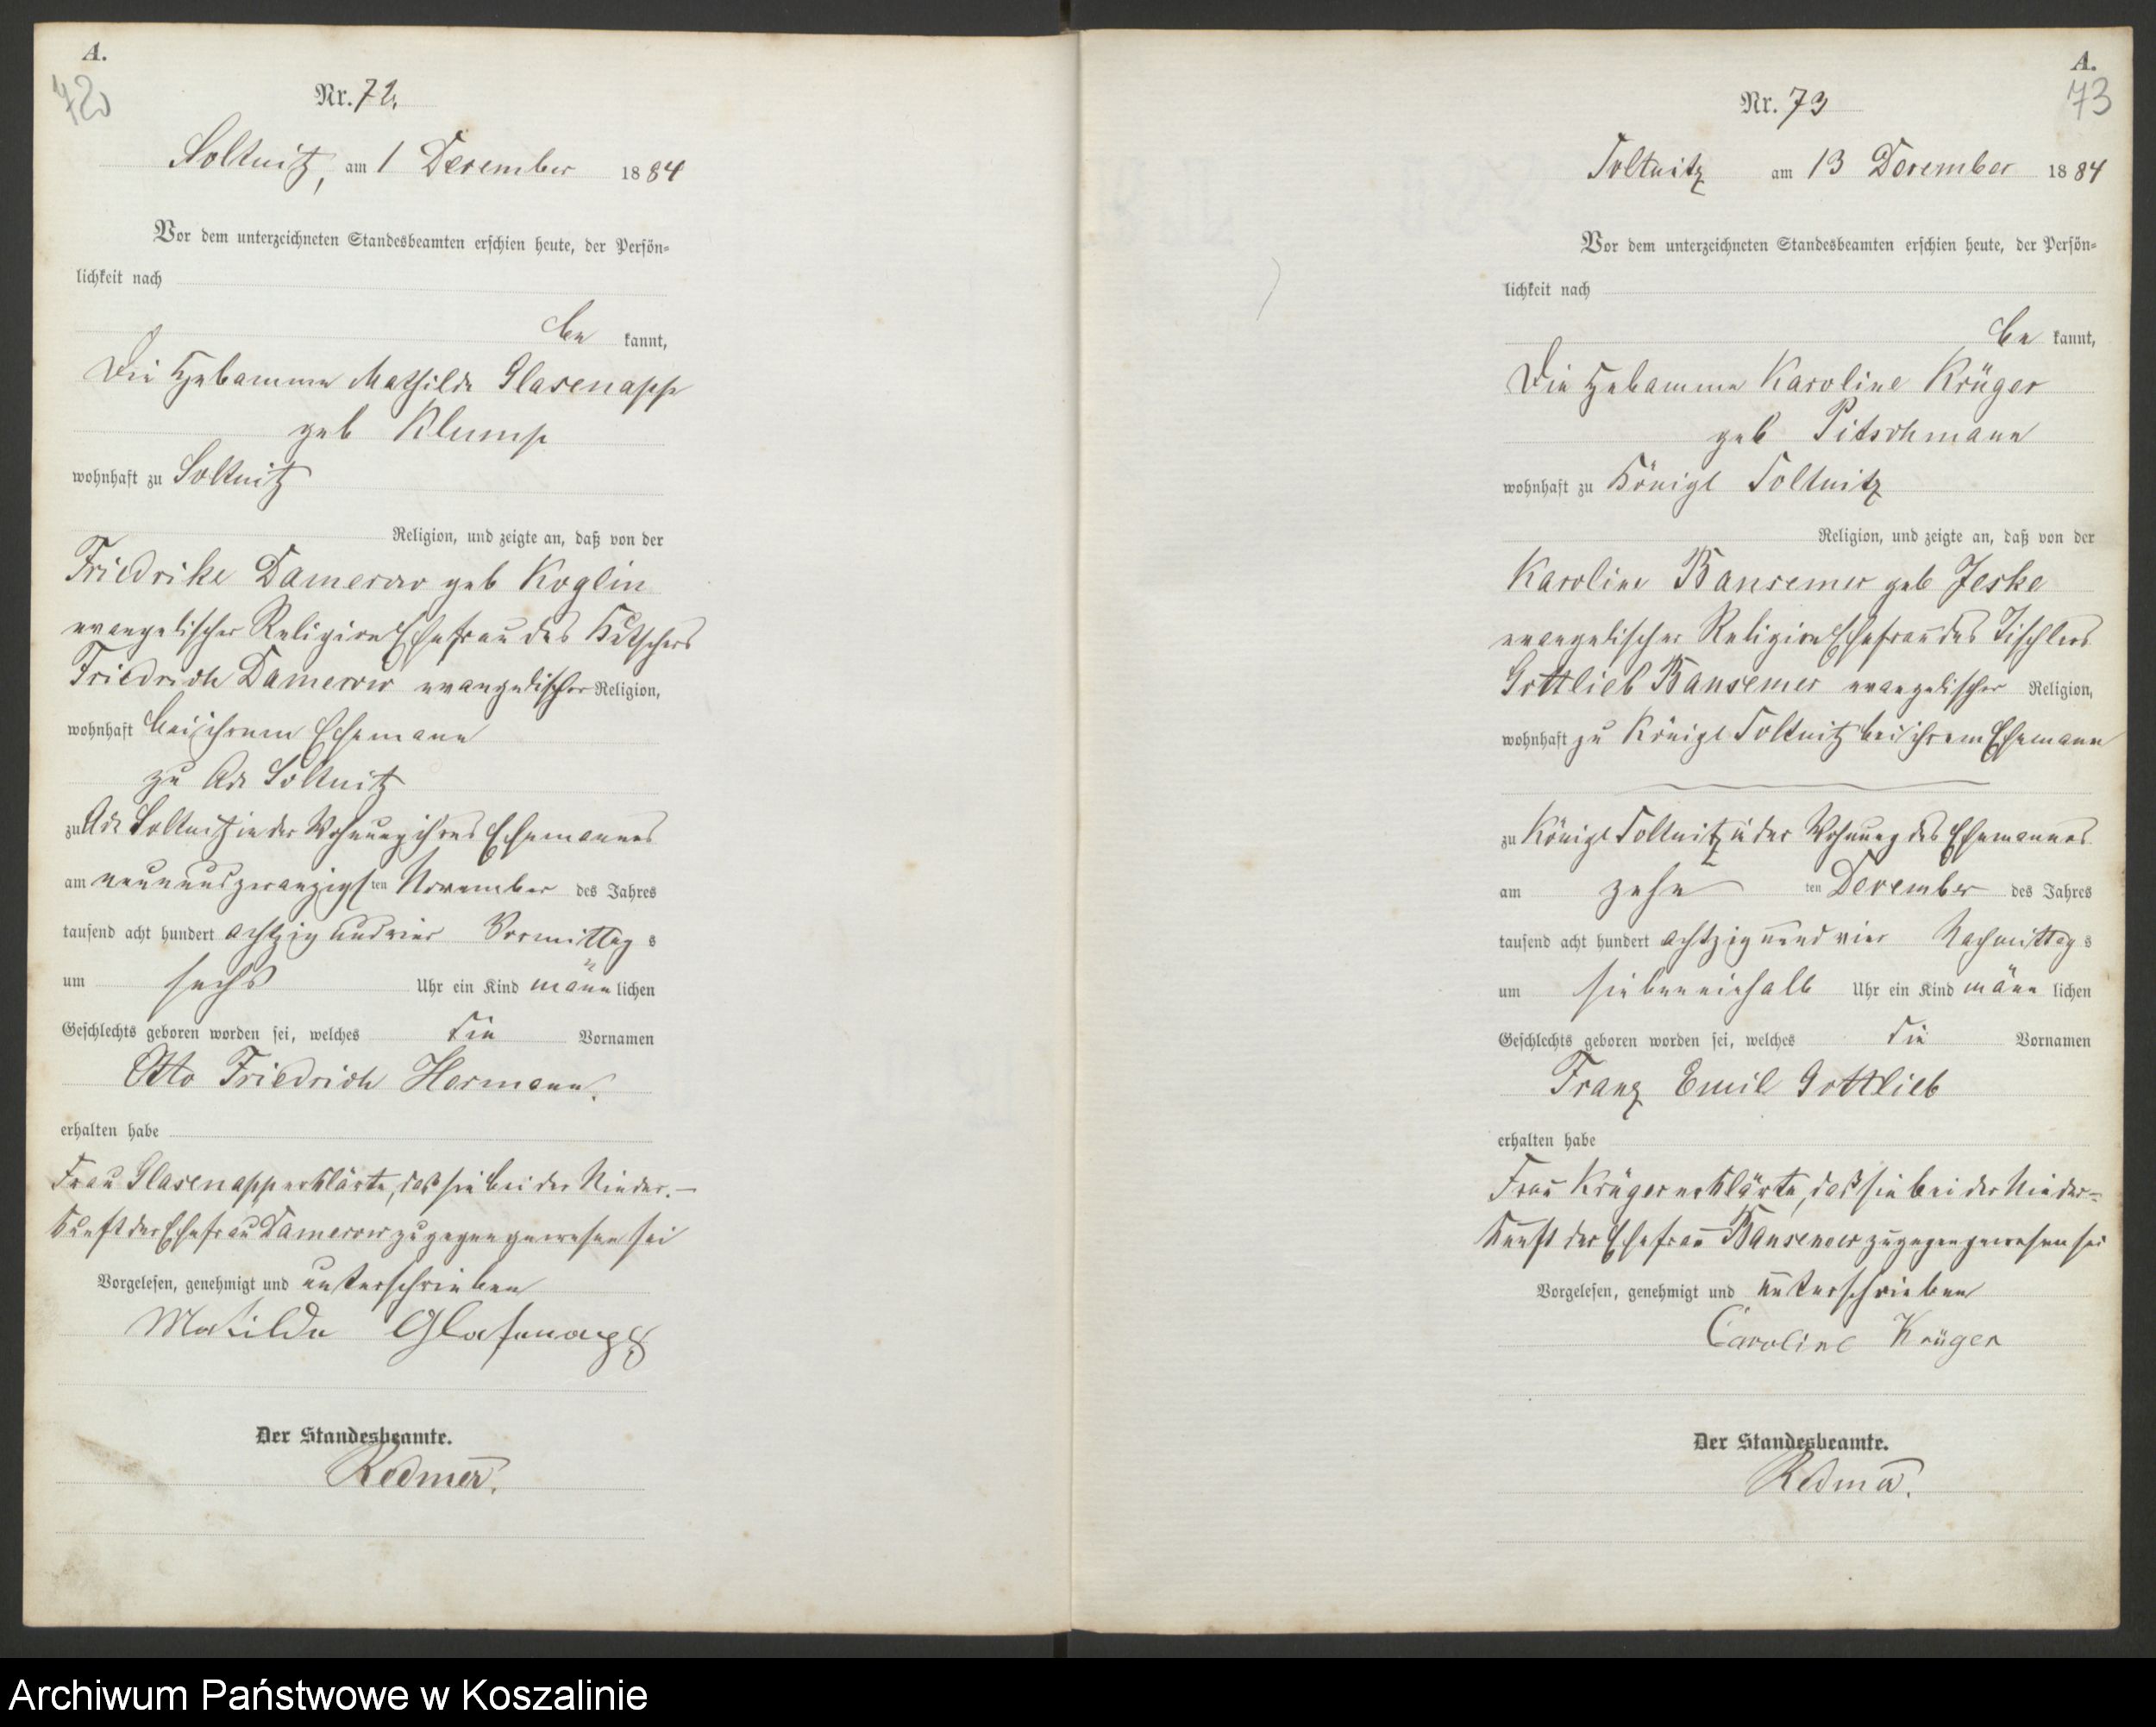 A.
72
Nr. 72.
Soltnitz, am 1 December 1884
Vor dem unterzeichneten Standesbeamten erschien heute, der Persön=
lichkeit nach
be kannt,
Die Hebamme Mathilde Glasenapp
geb Klump
wohnhaft zu Soltnitz
Religion, und zeigte an, daß von der
Friedrike Damerow geb Koglin
evangelischer Religion Ehefrau des
Friedrich Damerow evangelischer Religion,
wohnhaft bei ihrem Ehemann
zu Adl Soltnitz
zu Adl Soltnitz in der Wohnung ihres Ehemannes
am neunundzwanzigs ten November des Jahres
tausend acht hundert achtzig und vier Vormittag s
um sechs Uhr ein Kind männ lichen
Geschlechts geboren worden sei, welches die Vornamen
Otto Friedrich Hermann.
erhalten habe
Frau Glasenapp erklärte, daß sie bei der Nieder.-
kunft der Ehefrau Damerow zugegen gewesen sei
Vorgelesen, genehmigt und unterschrieben
Matilde Glasenapp
Der Standesbeamte.
Redmer.
A.
73
Nr. 73
Soltnitz am 13 December 1884
Vor dem unterzeichneten Standesbeamten erschien heute, der Persön=
lichkeit nach
be kannt,
Die Hebamme Karoline Krüger
geb Pitschmann
wohnhaft zu Königl Soltnitz
Religion, und zeigte an, daß von der
Karoline Bansemer geb Jeske
evangelischer Religion Ehefrau des Tischlers
Gottlieb Bansemer evangelischer Religion,
wohnhaft zu Königl Soltnitz bei ihrem Ehemann
zu Königl Soltnitz in der Wohnung des Ehemannes
am zehn ten December des Jahres
tausend acht hundert achtzig und vier Nachmittag s
um siebeneinhalb Uhr ein Kind männ lichen
Geschlechts geboren worden sei, welches die Vornamen
Franz Emil Gottlieb
erhalten habe
Frau Krüger erklärte, daß sie bei der Nieder=
kunft der Ehefrau Bansemer zugegen gewesen sei
Vorgelesen, genehmigt und unterschrieben
Caroline Krüger
Der Standesbeamte.
Redmer.
Archiwum Państwowe w Koszalinie